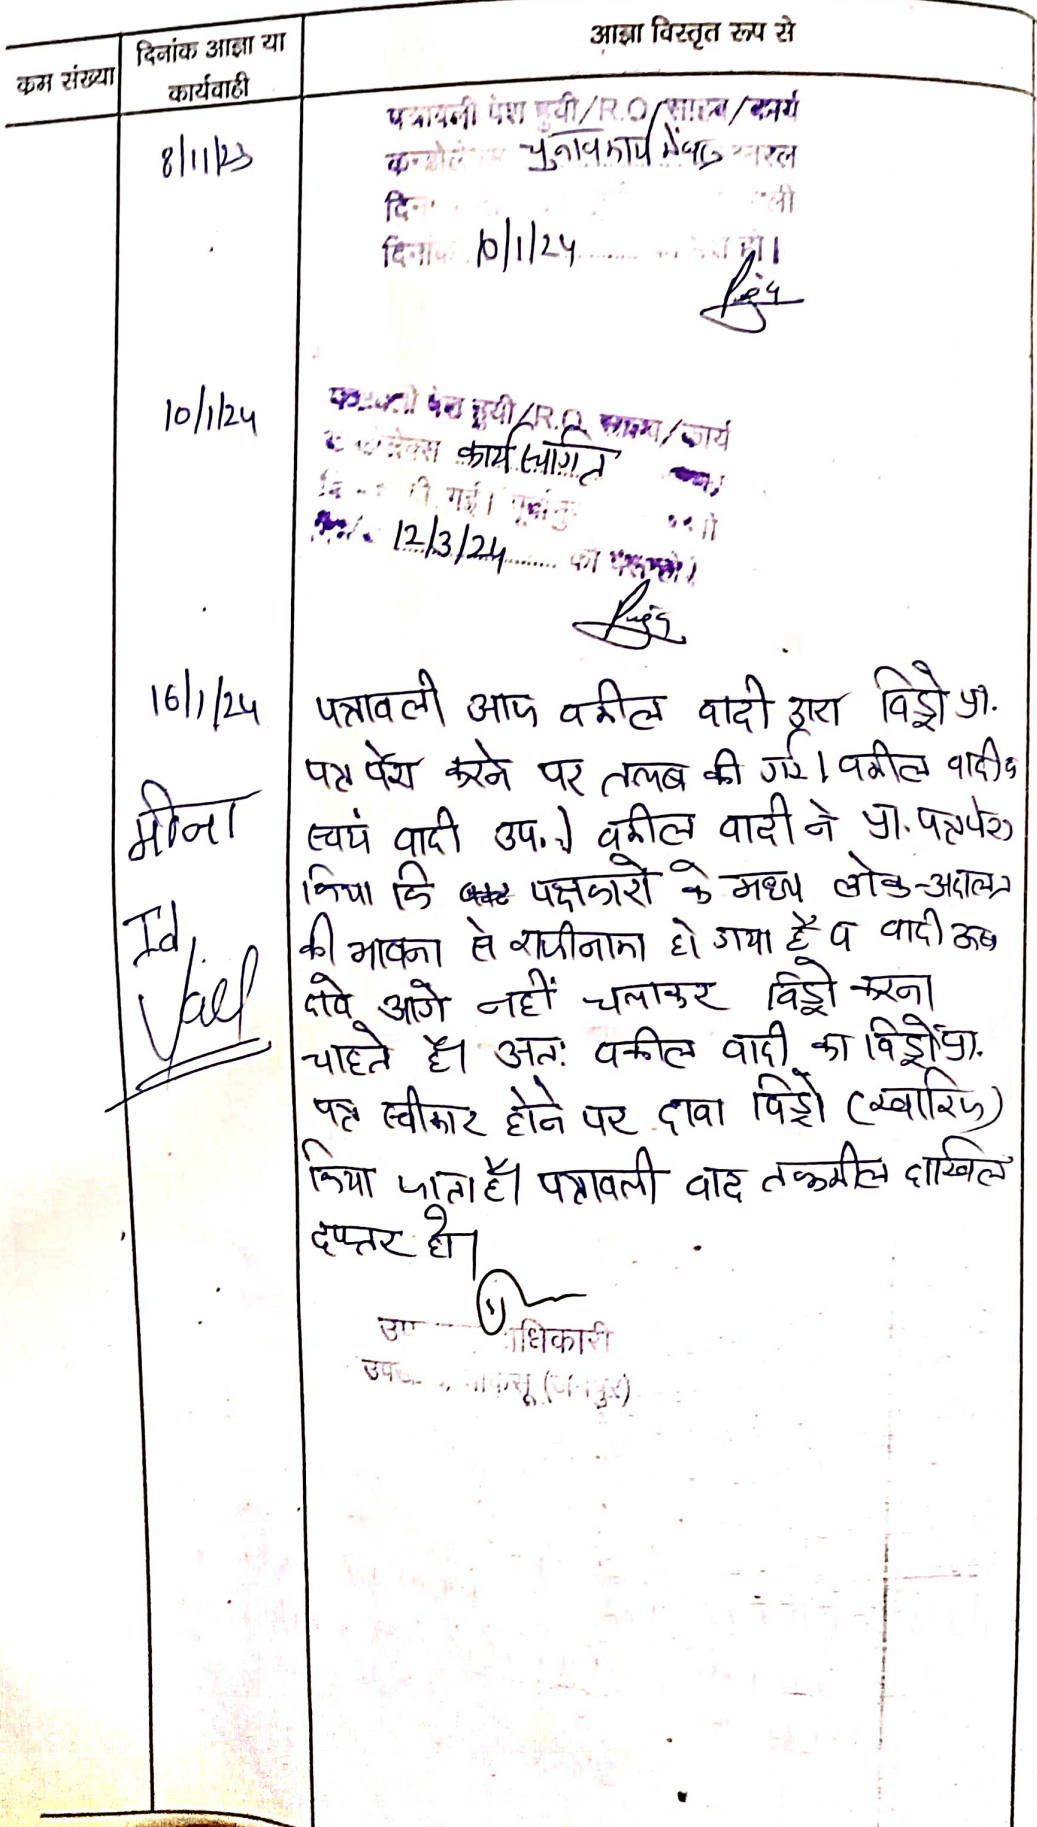 कम संख्या
दिनांक आज्ञा या
कार्यवाही
आज्ञा विस्तृत रूप से
8/11/23
पत्रावली पेश हुयी/R.O/साहब/कार्य
चुनाव कार्य में
दिनांक 10/1/24 हो।
10/1/24
पेश हुयी/R.O. /कार्य
कार्य स्थगित
गई।
12/3/24 को
16/1/24
पत्रावली आज वकील वादी द्वारा विड्रो प्रा.
पत्र पेश करने पर तलब की गई। वकील वादी व
स्वयं वादी उप.। वकील वादी ने प्रा. पत्र पेश
किया कि पक्षकारो के मध्य लोक-अदालत
की भावना से राजीनामा हो गया है व वादी
दावे आगे नहीं चलाकर विड्रो करना
चाहते है। अतः वकील वादी का विड्रो प्रा.
पत्र स्वीकार होने पर दावा विड्रो (खारिज)
किया जाता है। पत्रावली बाद तकमील दाखिल
दफ्तर हो।
मीना
Id,
धिकारी